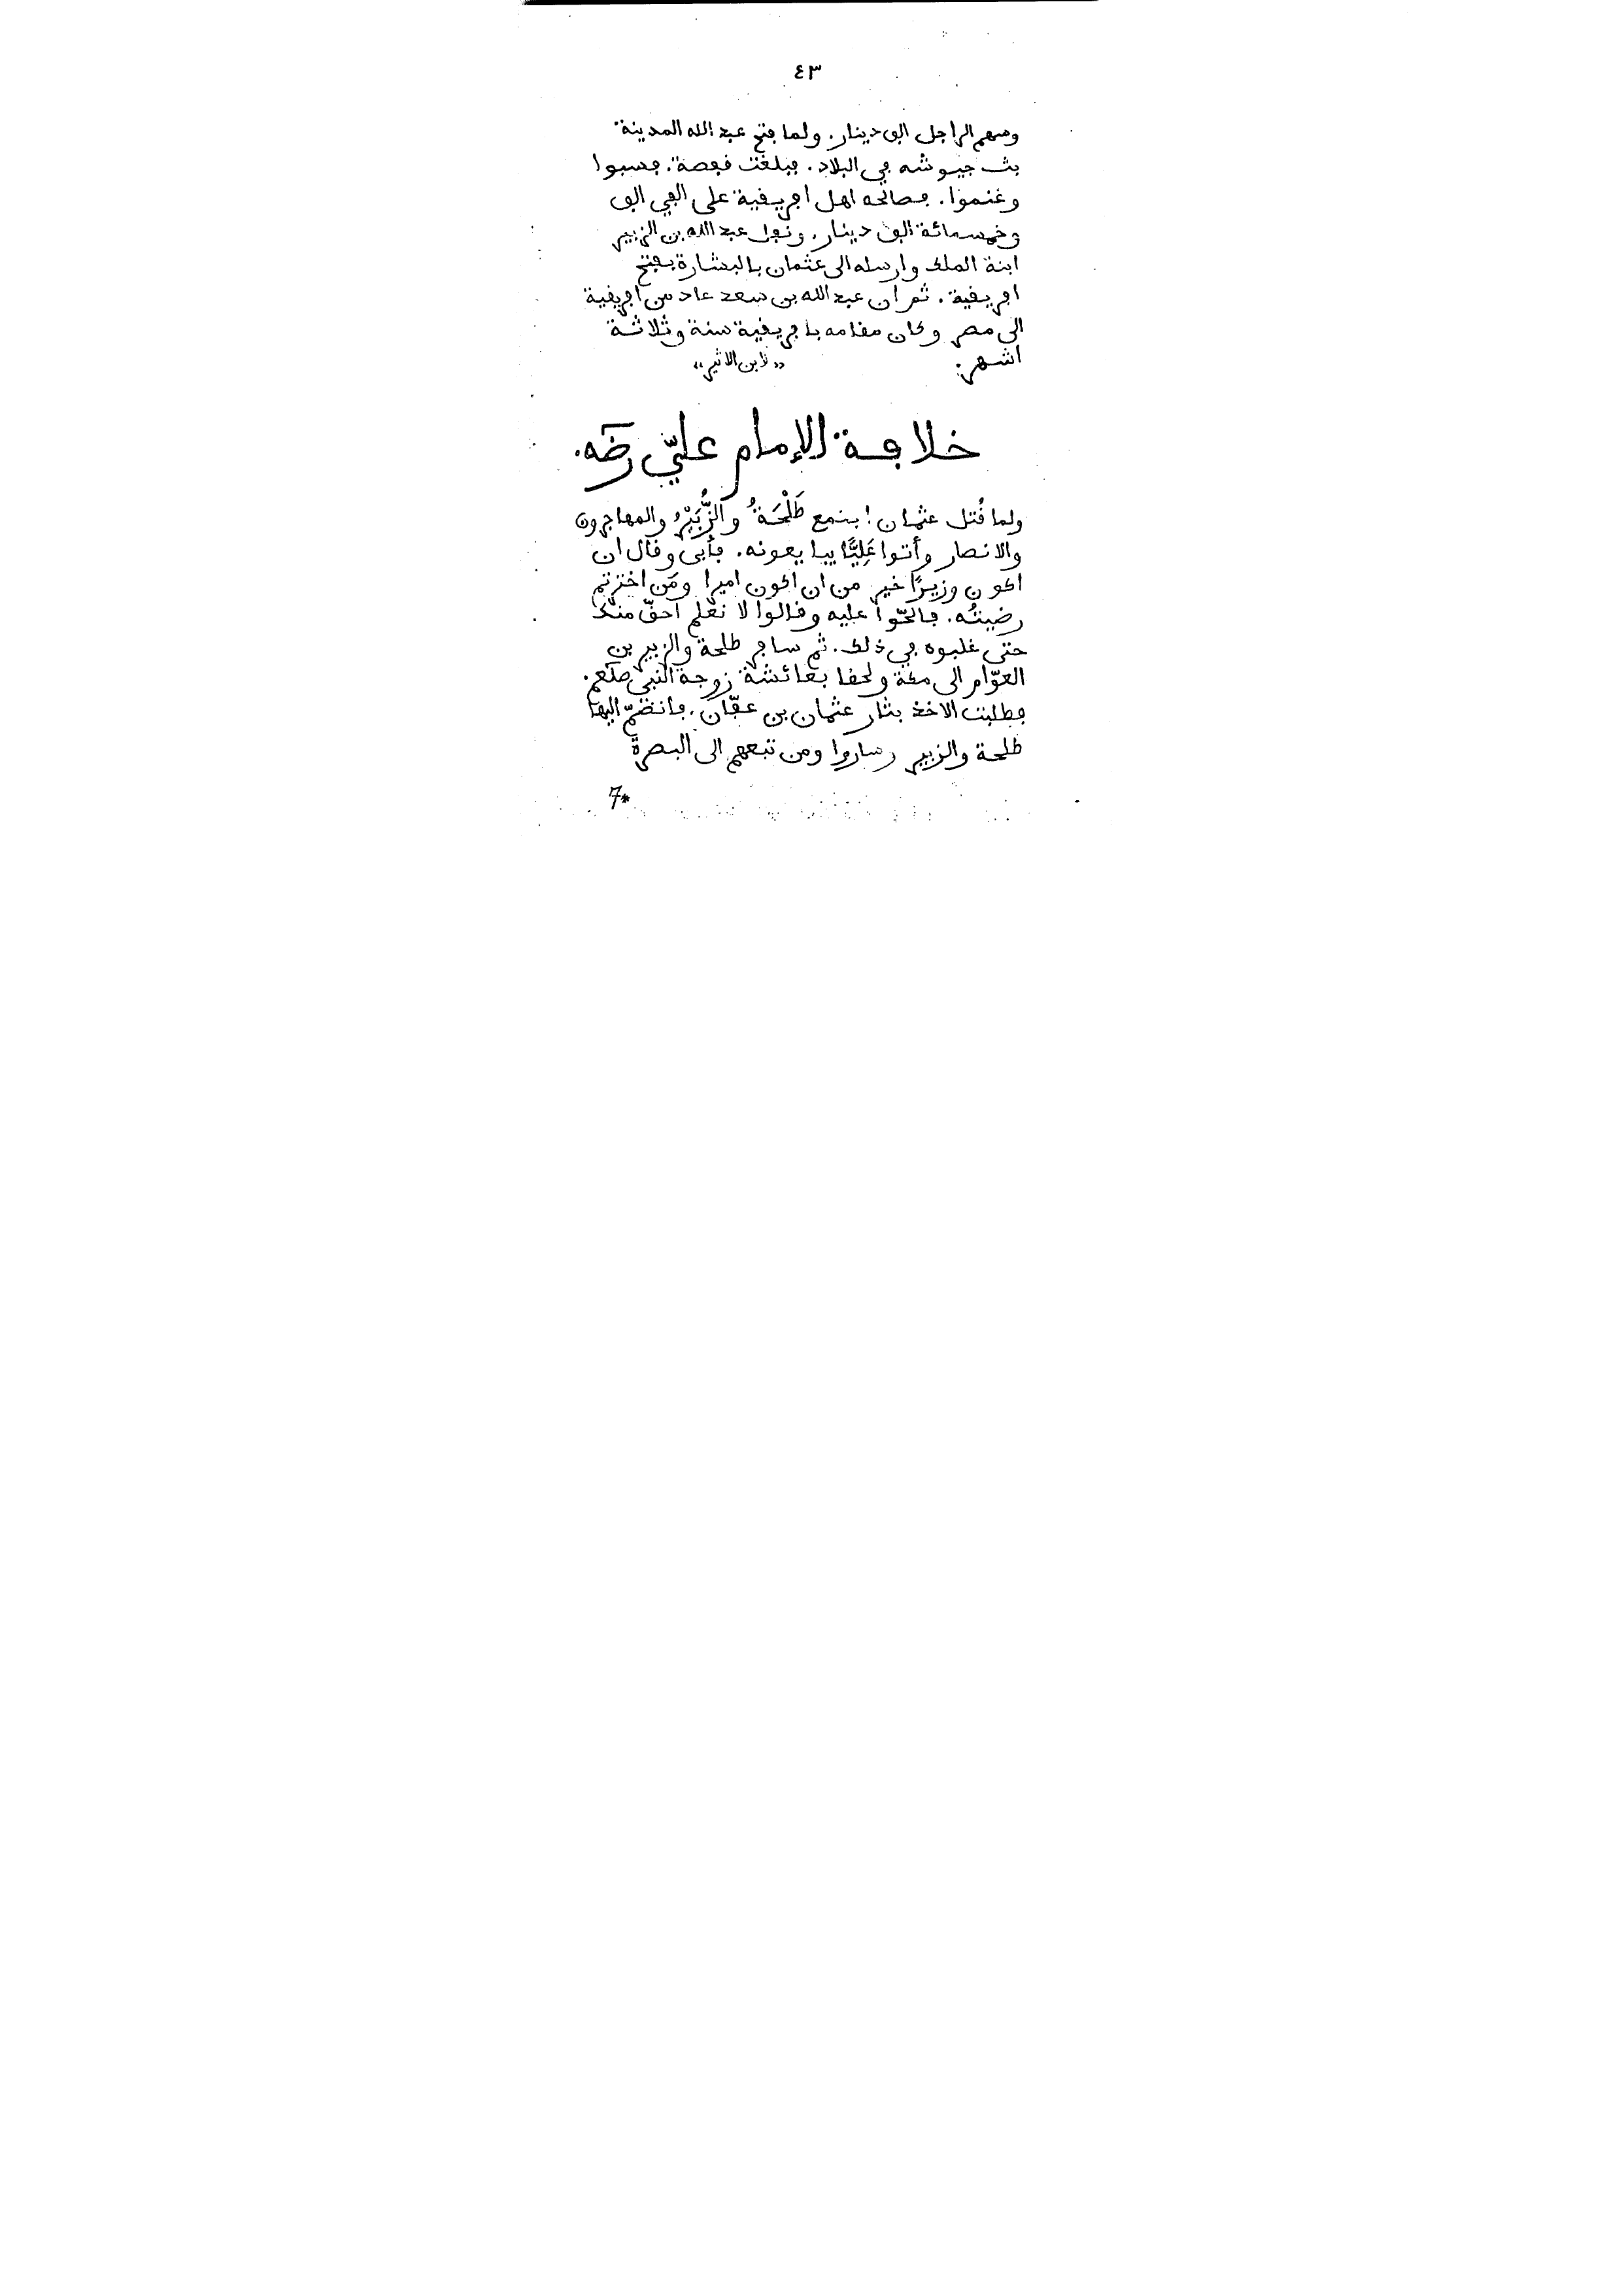 ٤٣
وسهم الراجل الف دينار. ولما فتح عبد الله المدينة
بث جيوشه في البلاد. فبلغت قفصة. فسبوا
وغنموا. فصالحه اهل افريقية على الفي الف
وخمسمائة الف دينار. ونفل عبد الله بن الزبير
ابنة الملك وارسله الى عثمان بالبشارة بفتح
افريقية. ثم ان عبد الله بن سعد عاد من افريقية
الى مصر وكان مقامه بافريقية سنة وثلاثة
اشهر: «لابن الاثير»
خلافة الإمام عليّ رضه.
ولما قُتل عثمان اجتمع طَلْحَةُ والزُّبَيْرُ والمهاجرون
والانصار وأتوا عَلِيًّا يبايعونه. فأبى وقال ان
اكون وزيرًا خير من ان اكون اميرا ومَن اخترتم
رضيتُه. فالحّوا عليه وقالوا لا نعلم احقّ منك
حتى غلبوه في ذلك. ثم سافر طلحة والزبير بن
العوّام الى مكة ولحقا بعائشة زوجة النبي صلعم.
فطلبت الاخذ بثار عثمان بن عفّان. فانضمّ اليها
طلحة والزبير وساروا ومن تبعهم الى البصرة
7*